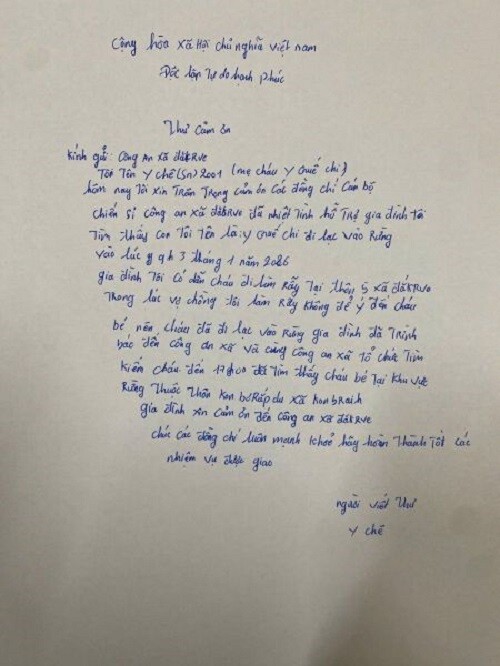 Cộng hòa xã Hội chủ nghĩa việt nam
Độc lập Tự do hạnh phúc
Thư cảm ơn
Kính gửi: Công An xã đăkRve
Tôi Tên Y chê (sn) 2001 (mẹ cháu Y Quế chi)
hôm nay Tôi xin Trân Trọng cảm ơn các đồng chí cán bộ
chiến sĩ công an xã đăkRve đã nhiệt Tình hỗ Trợ gia đình tôi
Tìm Thấy con Tôi Tên là: y Quế chi đi lạc vào Rừng
vào lúc 9h 3 tháng 1 năm 2026
gia đình Tôi có dẫn cháu đi làm Rẫy Tại thôn 5 xã đăkRve
Trong lúc vợ chồng tôi làm Rẫy không để ý đến cháu
bé nên cháu đã đi lạc vào Rừng gia đình đã Trình
báo đến công an xã và cùng công an xã tổ chức Tìm
kiếm cháu đến 17h00 đã tìm thấy cháu bé Tại khu vực
Rừng Thuộc Thôn Kon xã KonbRaih
gia đình xin cảm ơn đến công an xã đăkRve
chúc các đồng chí luôn mạnh khoẻ hãy hoàn Thành Tốt các
nhiệm vụ được giao
người viết Thư
Y chê